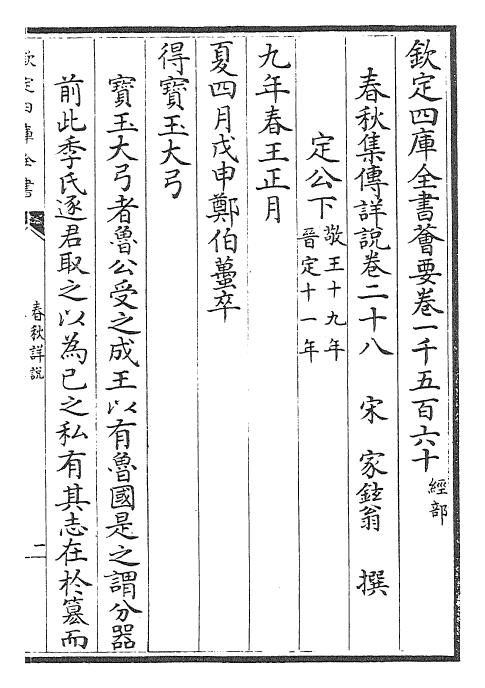 欽定四庫全書薈要卷一千五百六十 經部
春秋集傳詳說卷二十八 宋 家鉉翁 撰
定公下 敬王十九年 晉定十一年
九年春王正月
夏四月戊申鄭伯蠆卒
得寶玉大弓
寶玉大弓者魯公受之成王以有魯國是之謂分器
前此季氏逐君取之以為己之私有其志在於簒而
欽定四庫全書
春秋詳說
二